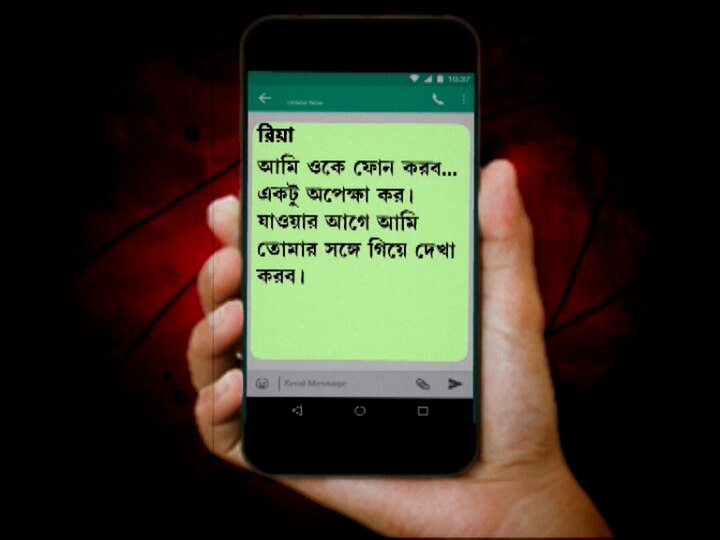 10:37
Online Now
রিয়া
আমি ওকে ফোন করব...
একটু অপেক্ষা কর।
যাওয়ার আগে আমি
তোমার সঙ্গে গিয়ে দেখা
করব।
Send Message